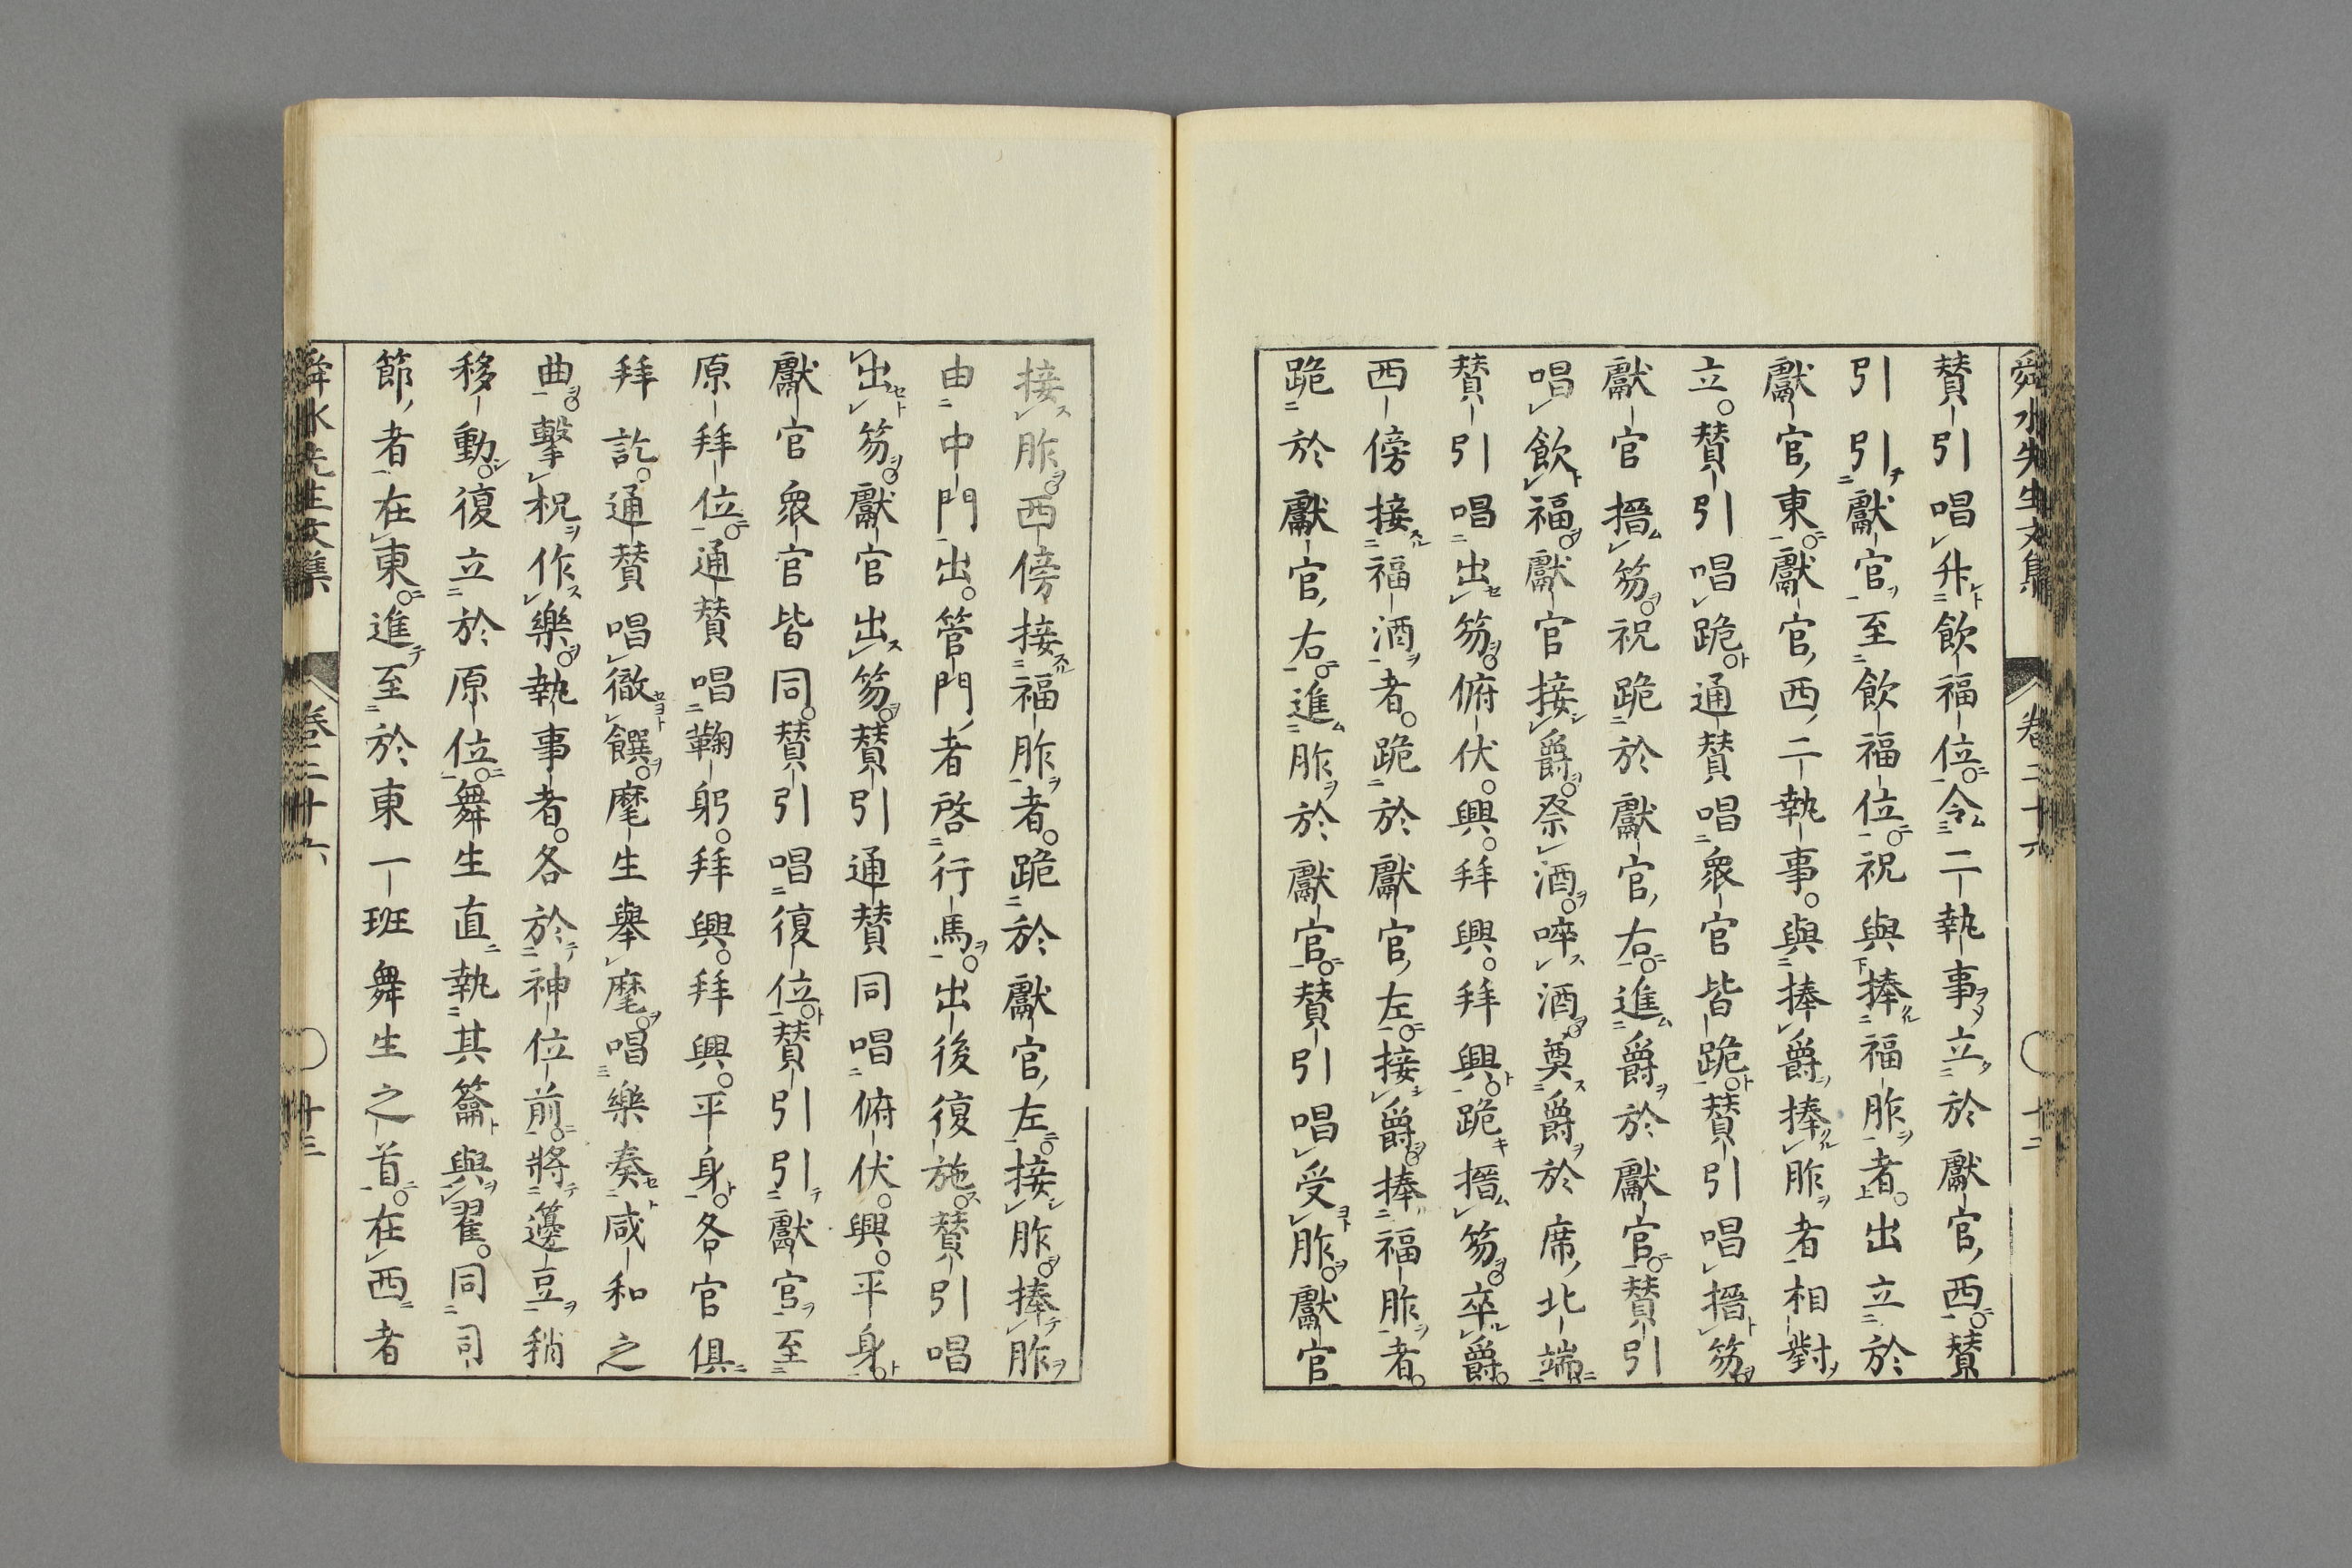 舜水先生文集　卷二十六　十二
贊引唱升飮福位令二執事立於獻官西贊
引引獻官至飮福位祝與捧福胙者出立於
獻官東獻官西二執事與捧爵捧胙者相對
立贊引唱跪通贊唱衆官皆跪贊引唱搢笏
獻官搢笏祝跪於獻官右進爵於獻官贊引
唱飮福獻官接爵祭酒啐酒奠爵於席北端
贊引唱出笏俯伏興拜興拜興跪搢笏卒爵
西傍接福酒者跪於獻官左接爵捧福胙者
跪於獻官右進胙於獻官贊引唱受胙獻官
接胙西傍接福胙者跪於獻官左接胙捧胙
由中門出管門者啓行馬出後復施贊引唱
出笏獻官出笏贊引通贊同唱俯伏興平身
獻官衆官皆同贊引唱復位贊引引獻官至
原拜位通贊唱鞠躬拜興拜興平身各官俱
拜訖通贊唱徹饌麾生舉麾唱樂奏咸和之
曲擊柷作樂執事者各於神位前將籩豆稍
移動復立於原位舞生直執其籥與翟同司
節者在東進至於東一班舞生之首在西者
舜水先生文集　卷二十六　十三